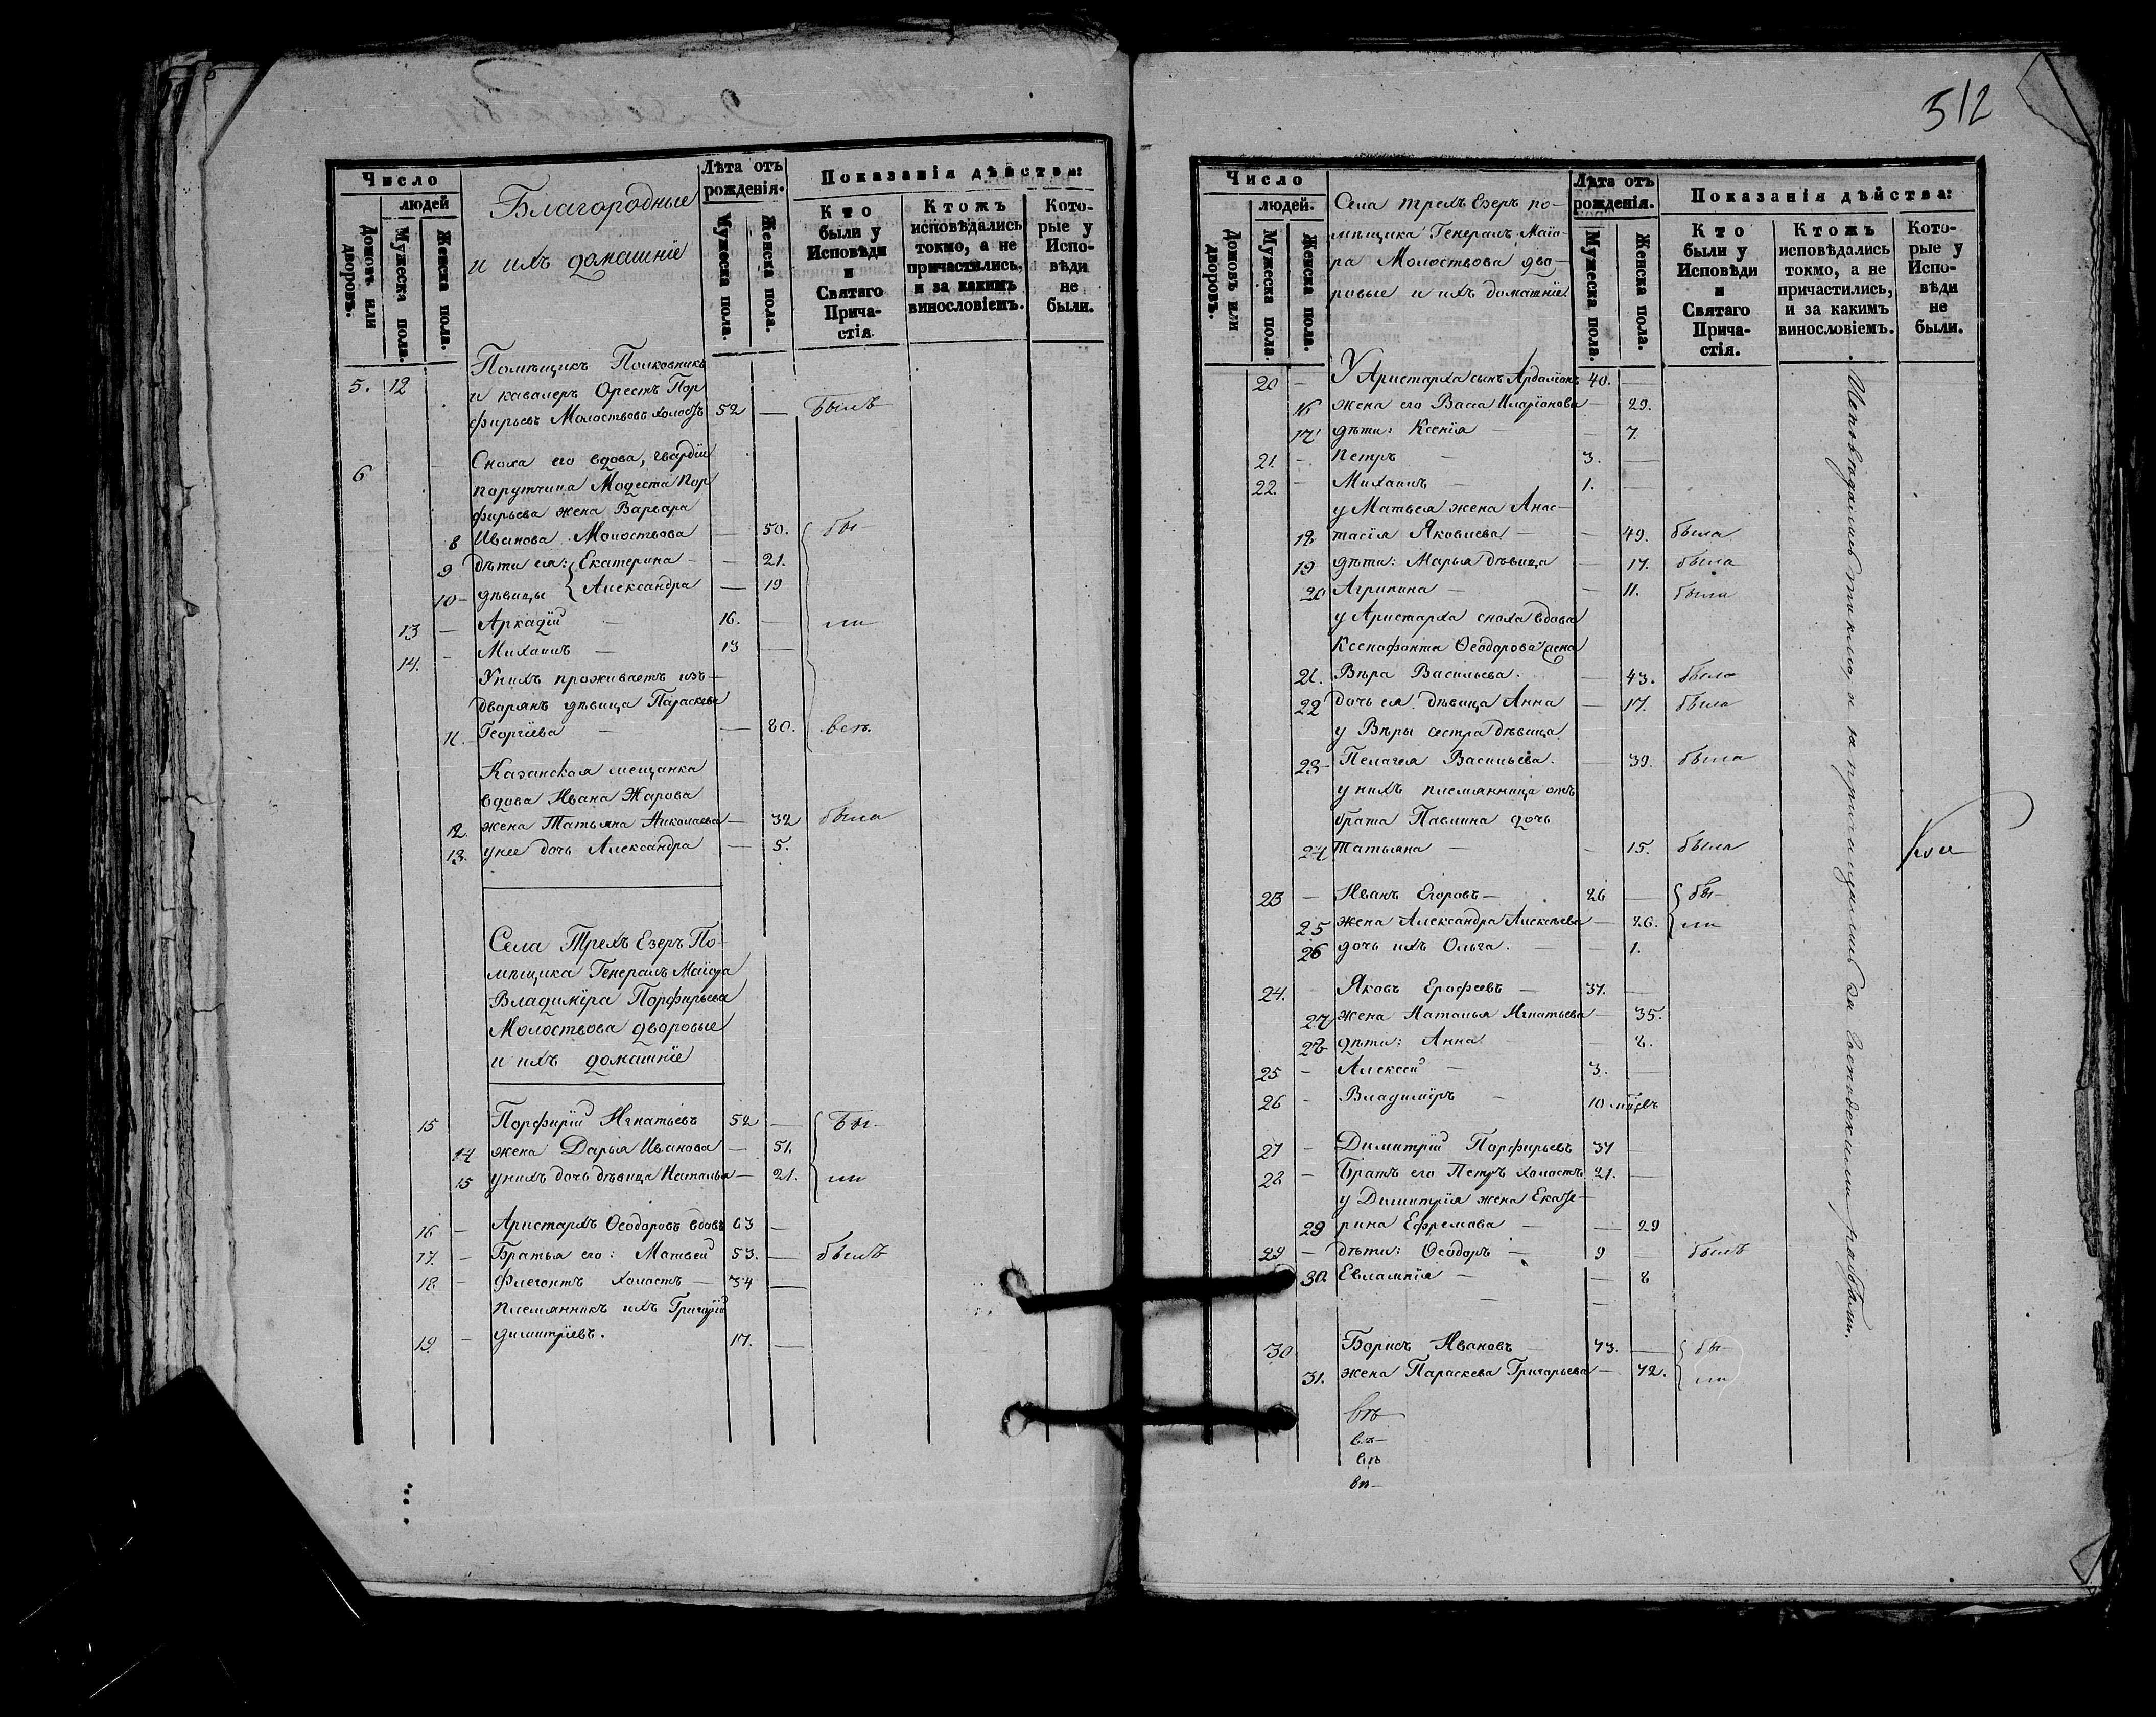 Число
людей
Домовъ или дворовъ.
Мужеска пола.
Женска пола.
Благородные
и ихъ домашніе
Лѣта отъ рожденія.
Мужеска пола.
Женска пола.
Показанія дѣйства:
Кто были у Исповѣди и Святаго Прича-стія.
Ктожъ исповѣдались токмо, а не причастились, и за какимъ винословіемъ.
Кото-рые у Испо-вѣди не были.
Помѣщикъ Полковникъ
5. 12 и кавалеръ Орестъ Пор
фирьевъ Молоствовъ холостъ 52 — Былъ
Сноха его вдова, гвардіи
6 порутчика Модеста Пор
фирьева жена Варвара
8 Иванова Молоствова — 50. бы-
9 дѣти ея: Екатерина — 21.
10 — дѣвицы Александра — 19
13 — Аркадій — 16. — ли
14. — Михаилъ — 13 —
У нихъ проживаетъ изъ
дворянъ дѣвица Параскева
11. Георгіева — — 80. всѣ.
Казанская мещанка
вдова Ивана Жарова
12. жена Татьяна Николаева — 32 была
13. у нее дочь Александра — 5.
Села Трехъ Езеръ По-
мѣщика Генералъ Маіора
Владиміра Порфирьева
Молоствова дворовые
и ихъ домашніе
15 Порфирій Игнатьевъ 52 — Бы-
14 жена Дарья Иванова — 51.
15 у нихъ дочь дѣвица Наталья — 21. ли
16 — Аристархъ Ѳеодоровъ вдовъ 63 —
17. — Братья его: Матвей 53. — былъ
18 — Флегонтъ холостъ — 34 —
племянникъ ихъ Григорій
19. — Димитріевъ. 17. —
512
Число
людей.
Домовъ или дворовъ.
Мужеска пола.
Женска пола.
Села трехъ Езеръ по-
мѣщика Генералъ Маіо-
ра Молоствова дво-
ровые и ихъ домашніе
Лѣта отъ рожденія.
Мужеска пола.
Женска пола.
Показанія дѣйства:
Кто были у Исповѣди и Святаго Прича-стія.
Ктожъ исповѣдались токмо, а не причастились, и за какимъ винословіемъ.
Кото-рые у Испо-вѣди не были.
20 — У Аристарха сынъ Ардаліонъ 40. —
16 жена его Васса Иларіонова — 29.
17 дѣти: Ксенія — — 7.
21. — Петръ — 3. —
22. — Михаилъ — 1. —
у Матвея жена Анас-
18 тасія Яковлева — — 49. была
19 дѣти: Марья дѣвица — 17. была
20 Агрипина — — 11. была
у Аристарха сноха вдова
Ксенофонта Ѳеодорова жена
21. Вѣра Васильева. — 43. была
22 дочь ея дѣвица Анна — 17. была
у Вѣры сестра дѣвица
23 — Пелагея Васильева. — 39. была
у нихъ племянница отъ
брата Павлина дочь
24 Татьяна — — 15. была
23 — Иванъ Егоровъ — 26 — бы-
25 жена Александра Алексѣева — 26. ли
26 дочь ихъ Ольга. — — 1.
24. — Яковъ Ерофеевъ — 37. —
27 жена Наталья Игнатьева — 35.
28 дѣти: Анна — — 8.
25 — Алексей — 3. —
26 — Владиміръ — 10 мѣсѣвъ
27 — Димитрій Порфирьевъ 37 —
28 — Братъ его Петръ холостъ 21. —
у Димитрія жена Екате-
29 рина Ефремова — — 29
29 — дѣти: Ѳеодоръ — 9 — былъ
30. Евлампія — — 8
30 Борисъ Ивановъ — 73. — бы-
31. жена Параскева Григорьева — 72. ли
Исповѣдались токмо, а не причащались за Господскими работами.